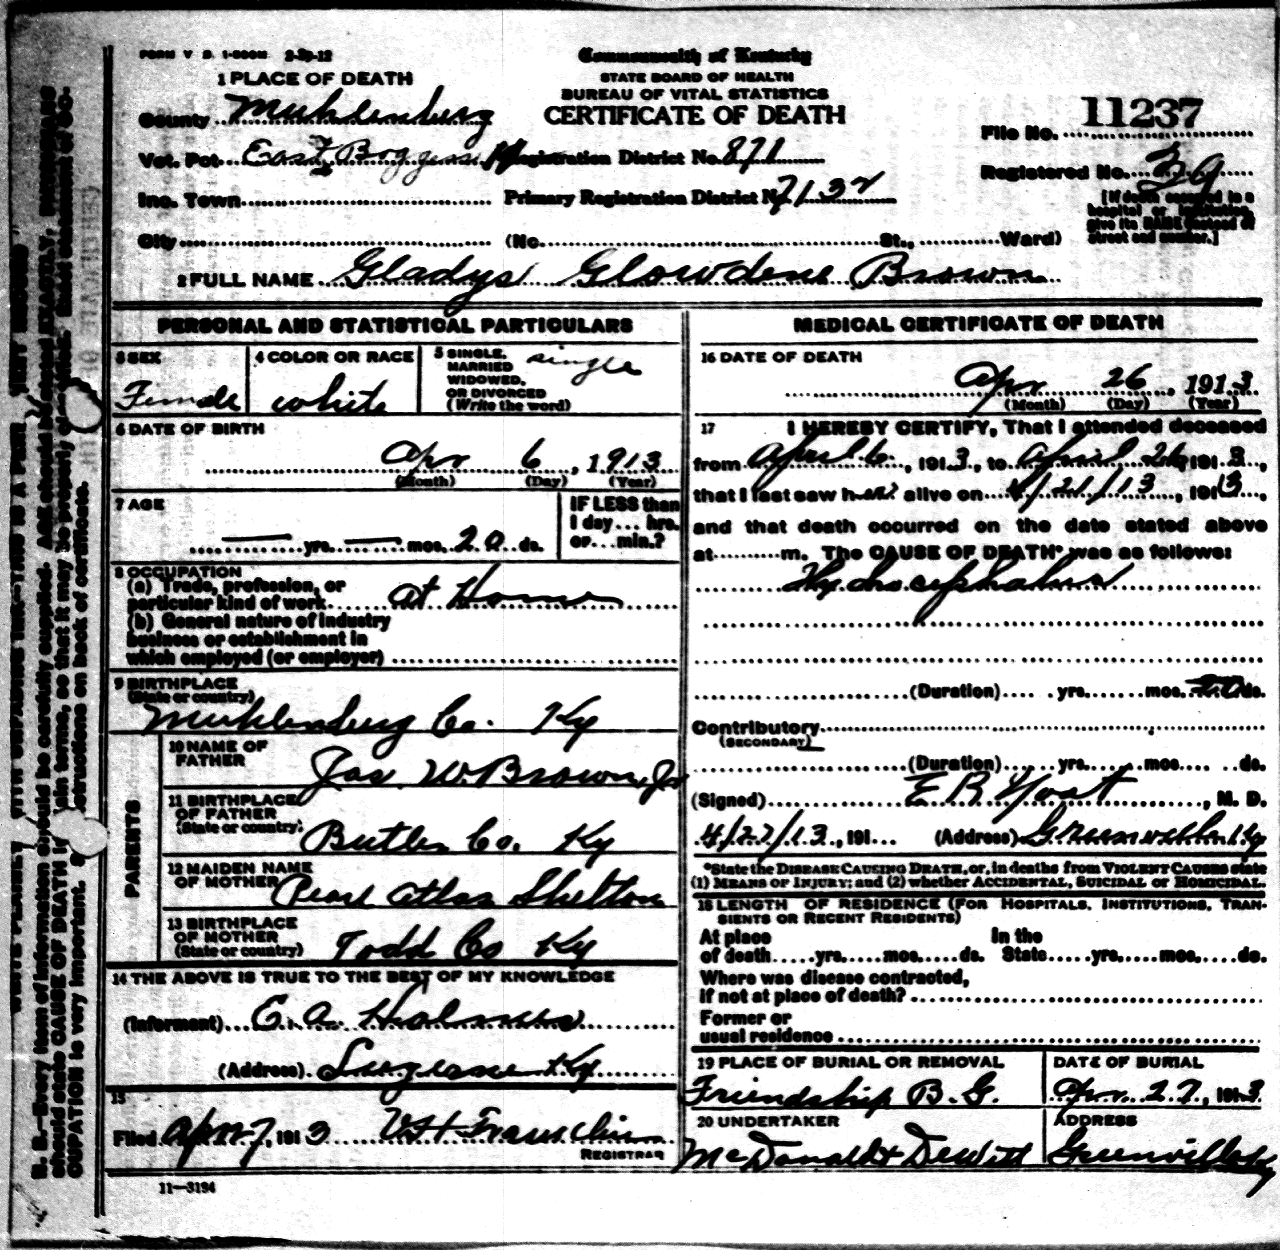 FORM V S. 1-500M 2-29-12
Commonwealth of Kentucky
STATE BOARD OF HEALTH
BUREAU OF VITAL STATISTICS
CERTIFICATE OF DEATH
1 PLACE OF DEATH
County Muhlenberg
Vot. Pct. East Boggess Registration District No. 871
Inc. Town Primary Registration District No. 7132
City (No. St., Ward)
File No. 11237
Registered No. 39
[If death occurred in a
hospital or institution,
give its NAME instead of
street and number.]
2 FULL NAME Gladys Glowdene Brown
PERSONAL AND STATISTICAL PARTICULARS
3 SEX Female
4 COLOR OR RACE white
5 SINGLE, MARRIED WIDOWED, OR DIVORCED (Write the word) single
6 DATE OF BIRTH
Apr 6, 1913
(Month) (Day) (Year)
7 AGE
— yrs. — mos. 20 ds.
IF LESS than
1 day... hrs.
or... min.?
8 OCCUPATION
(a) Trade, profession, or
particular kind of work At Home
(b) General nature of industry
business or establishment in
which employed (or employer)
9 BIRTHPLACE
(State or country)
Muhlenburg Co. Ky
PARENTS
10 NAME OF
FATHER Jas. W. Brown, Jr
11 BIRTHPLACE
OF FATHER
(State or country) Butler Co. Ky
12 MAIDEN NAME
OF MOTHER Pearl Atlas Shelton
13 BIRTHPLACE
OF MOTHER
(State or country) Todd Co Ky
14 THE ABOVE IS TRUE TO THE BEST OF MY KNOWLEDGE
(Informant) E. A. Holmes
(Address) Luzerne Ky
15
Filed Apr 27, 1913
REGISTRAR
11—3194
MEDICAL CERTIFICATE OF DEATH
16 DATE OF DEATH
Apr 26, 1913
(Month) (Day) (Year)
17 I HEREBY CERTIFY, That I attended deceased
from April 6, 1913, to April 26, 1913,
that I last saw her alive on 4/21/13, 1913,
and that death occurred on the date stated above
at m. The CAUSE OF DEATH* was as follows:
Hydrocephalus
(Duration) yrs. mos. 20 ds.
Contributory
(SECONDARY)
(Duration) yrs. mos. ds.
(Signed) E R Yost, M. D.
4/27/13, 191 (Address) Greenville Ky
*State the DISEASE CAUSING DEATH, or, in deaths from VIOLENT CAUSES state
(1) MEANS OF INJURY; and (2) whether ACCIDENTAL, SUICIDAL or HOMICIDAL.
18 LENGTH OF RESIDENCE (FOR HOSPITALS, INSTITUTIONS, TRAN-
SIENTS OR RECENT RESIDENTS)
At place In the
of death yrs. mos. ds. State yrs. mos. ds.
Where was disease contracted,
if not at place of death?
Former or
usual residence
19 PLACE OF BURIAL OR REMOVAL
Friendship B. G.
DATE OF BURIAL
Apr. 27, 1913
20 UNDERTAKER
McDonald & Dewitt
ADDRESS
Greenville Ky
N. B.—Every item of information should be carefully supplied. AGE should be stated EXACTLY. PHYSICIANS
should state CAUSE OF DEATH in plain terms, so that it may be properly classified. Exact statement of OC-
CUPATION is very important. See instructions on back of certificate.